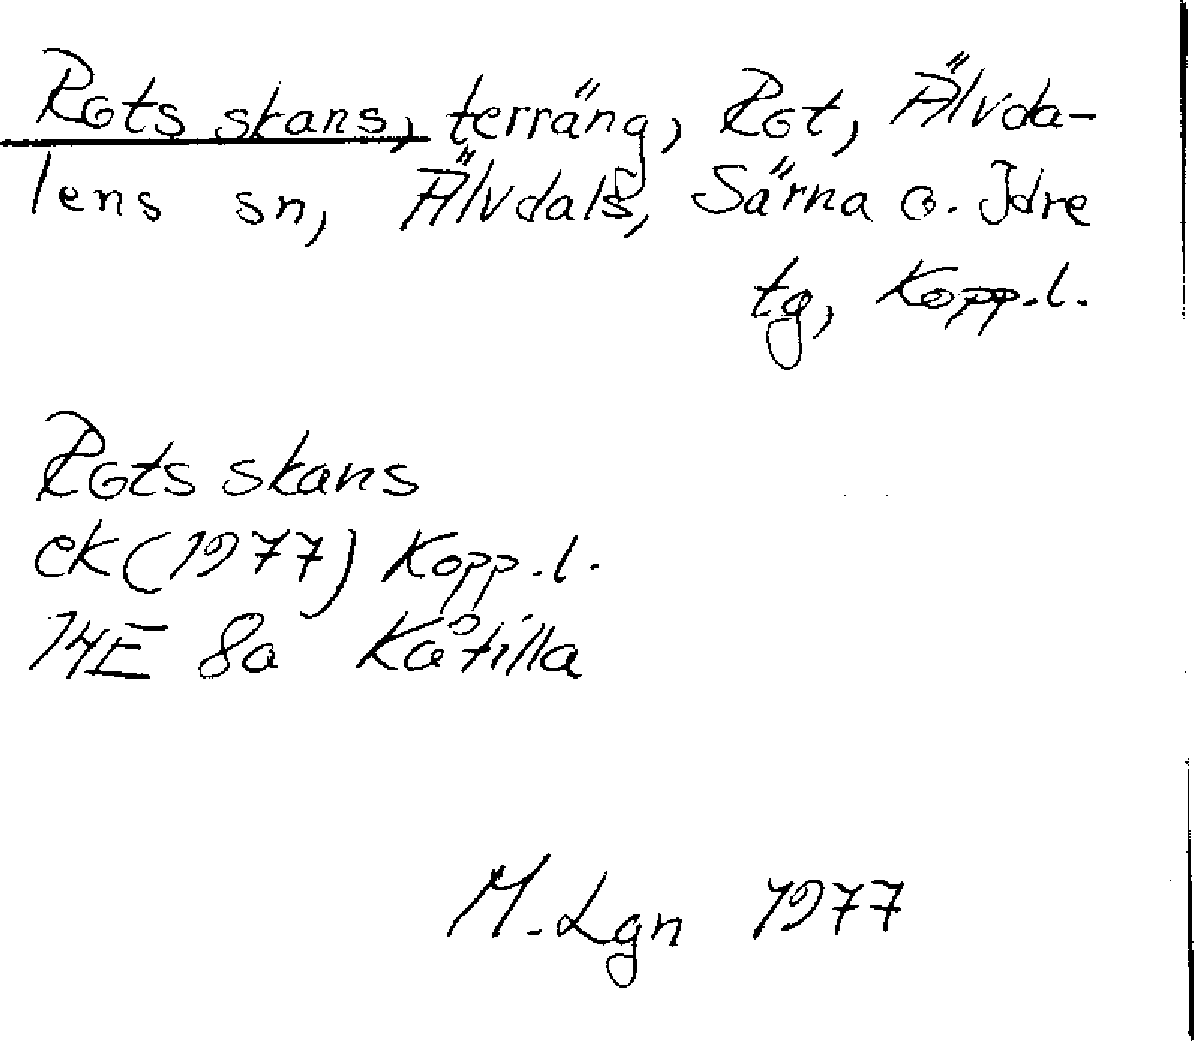 Rots skans, terräng, Rot, Älvda-
lens sn, Älvdals, Särna o. Idre
tg, Kopp.l.
Rots skans
ek (1977) Kopp.l.
14E 8a Kåtilla
M. Lgn 1977